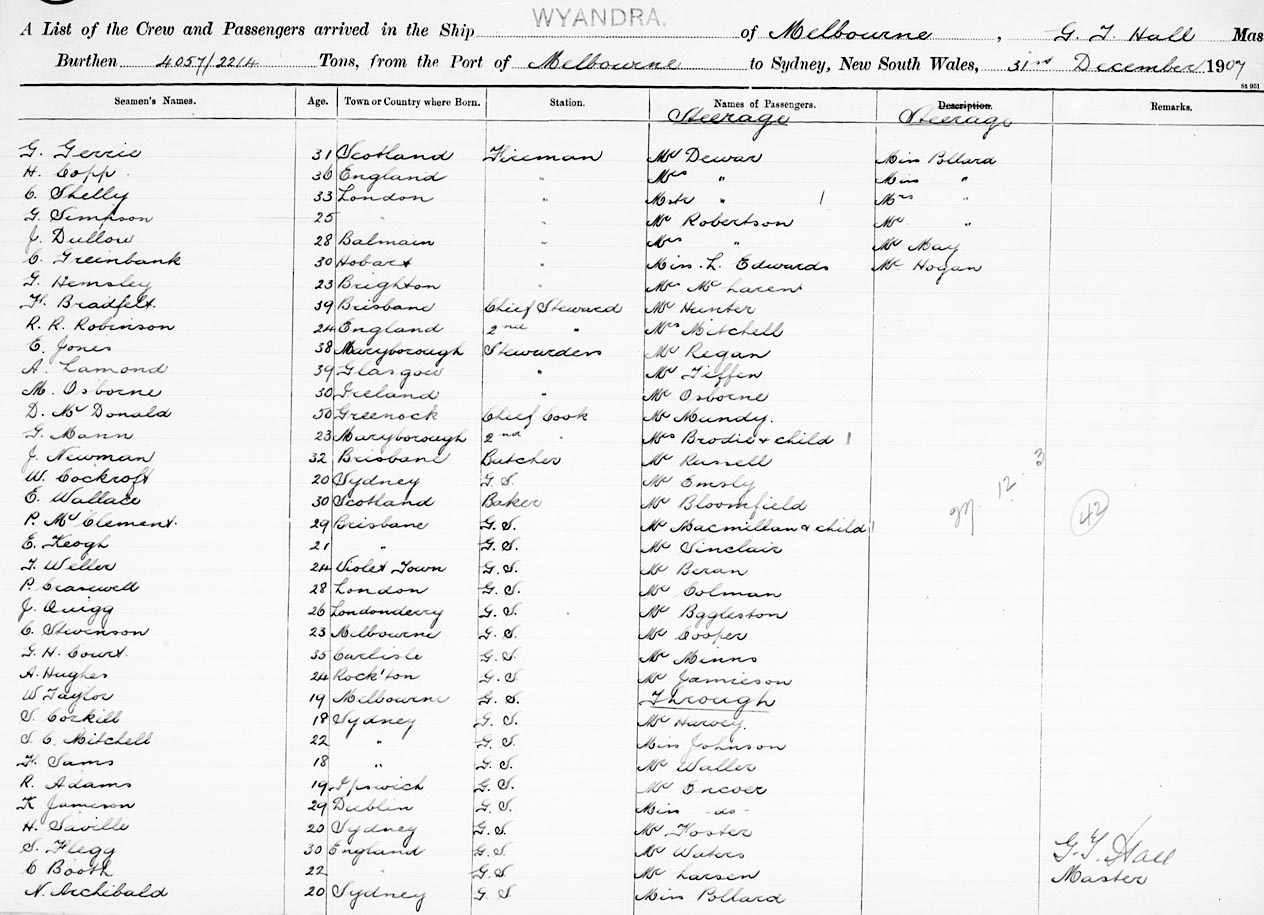 WYANDRA.
A List of the Crew and Passengers arrived in the Ship of Melbourne, G. T. Hall Mas
Burthen 4057/2214 Tons, from the Port of Melbourne to Sydney, New South Wales, 31st December 1907
St 951
Seamen's Names. Age. Town or Country where Born. Station. Names of Passengers. Description. Remarks.
Steerage Steerage
G. Gerrie 31 Scotland Fireman Mr Dewar Miss Pollard
H. Copp. 36 England " Mrs " Miss "
C. Shelly 33 London " Mstr " 1 Mrs "
G. Simpson 25 " " Mr Robertson Mr "
J. Dullow 28 Balmain " Mrs " Mr May
C. Greenbank 30 Hobart " Miss L. Edwards Mr Hogan
G. Hemsley 23 Brighton " Mr McLaren
H. Bradfelt. 39 Brisbane Chief Steward Mr Hunter
R. R. Robinson 24 England 2nd " Mrs Mitchell
E. Jones 38 Maryborough Stewardess Mr Regan
A. Lamond 39 Glasgow " Mr Tiffen
M. Osborne 30 Ireland " Mr Osborne
D. McDonald 50 Greenock Chief Cook Mr Mundy.
G. Mann 23 Maryborough 2nd " Mrs Brodie & child 1
J. Newman 32 Brisbane Butcher Mr Russell
W. Cockroft 20 Sydney G. S. Mr Emsly
E. Wallace 30 Scotland Baker Mr Bloomfield
P. McClement. 29 Brisbane G. S. Mr Macmillan & child 1
E. Keogh 21 " G. S. Mr Sinclair
T. Weller 24 Violet Town G. S. Mr Beran
P. Crasewell 28 London G. S. Mr Colman
J. Quigg 26 Londonderry G. S. Mr Bggleston
C. Stevenson 23 Melbourne G. S. Mr Cooper
G. H. Court. 35 Carlisle G. S. Mr Minns
A. Hughes 24 Rock'ton G. S. Mr Jamieson
W Taylor 19 Melbourne G. S. Through
S. Corkill 18 Sydney G. S. Mr Harvey.
S. C. Mitchell 22 " G. S. Miss Johnson
H. Sams 18 " G. S. Mr Waller
R. Adams 19 Ipswich G. S. Mr Encoer
K Jameson 29 Dublin G. S. Miss -do-
H. Saville 20 Sydney G. S. Mr Foster
S. Flegg 30 England G. S. Mr Waters
C Booth 22 " G. S. Mr Larsen
N. Archibald 20 Sydney G. S. Miss Pollard
12 3
42
G. T. Hall
Master